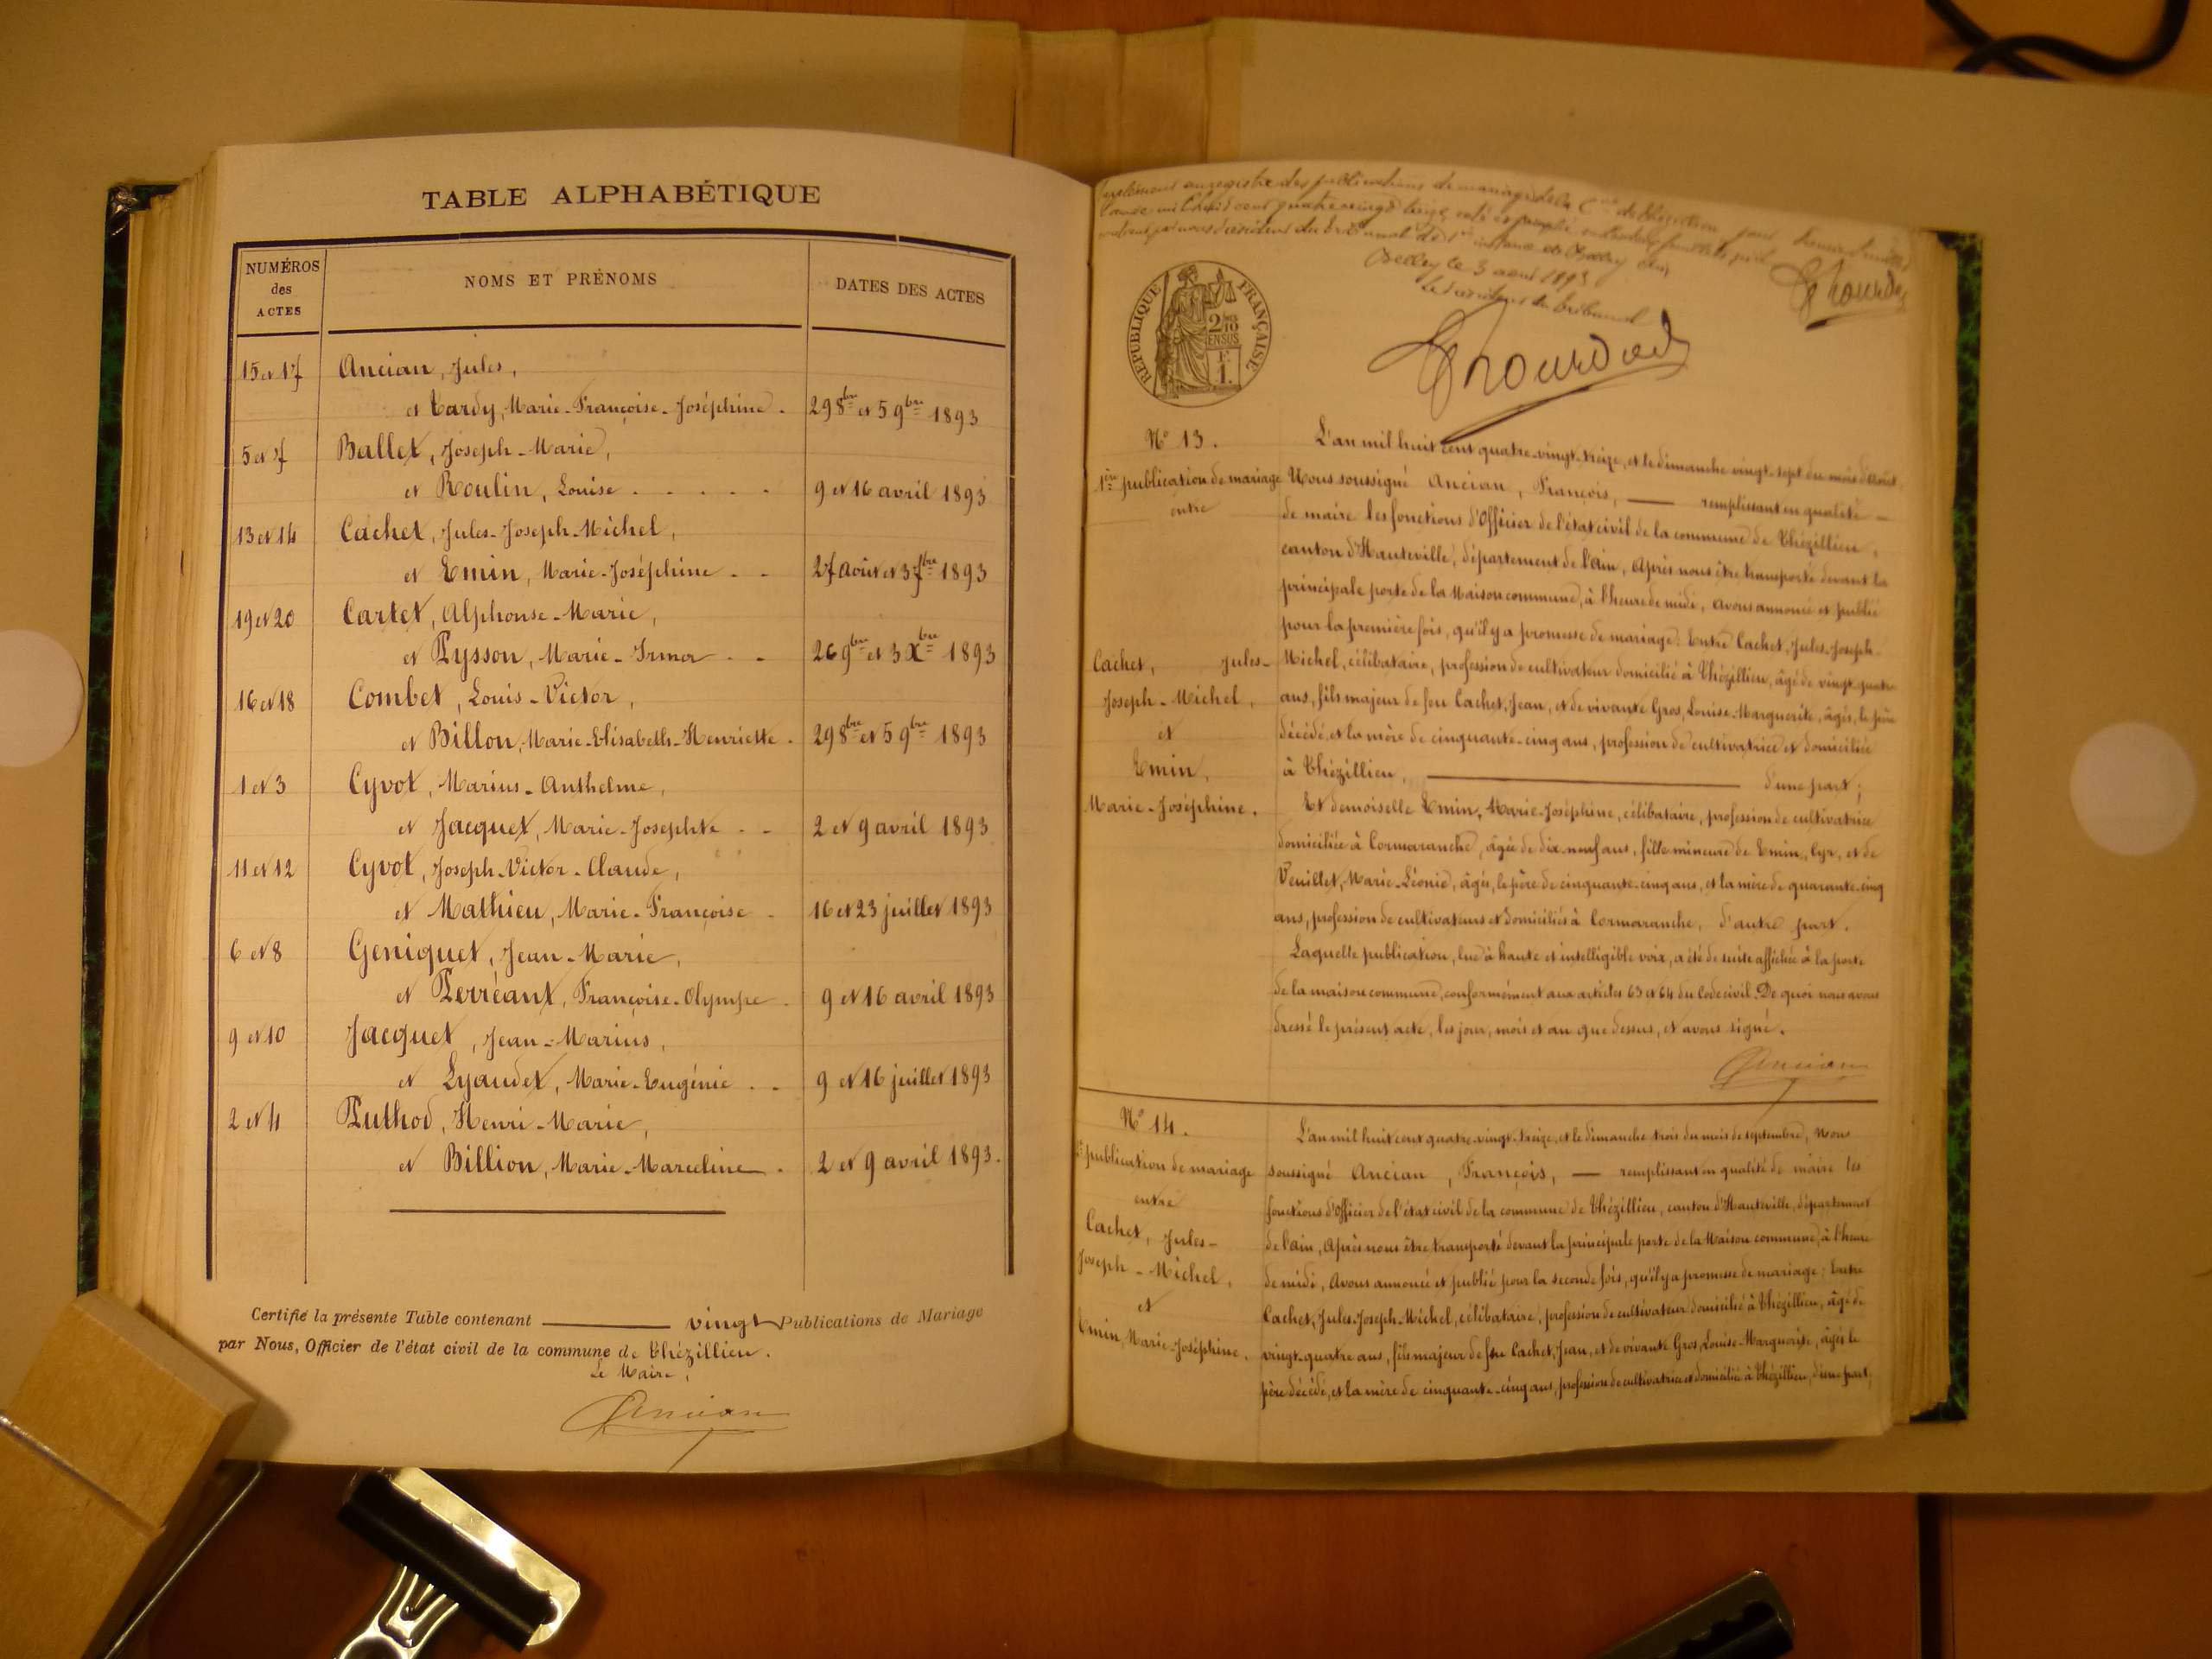 TABLE ALPHABÉTIQUE
NUMÉROS des ACTES
NOMS ET PRÉNOMS
DATES DES ACTES
15 et 17 Ancian, Jules,
et Tardy, Marie-Françoise-Joséphine. 29 8bre et 5 9bre 1893
5 et 7 Ballet, Joseph-Marie,
et Roulin, Louise . . . . . 9 et 16 avril 1893
13 et 14 Cachet, Jules-Joseph-Michel,
et Emin, Marie-Joséphine . . 27 août et 3 7bre 1893
19 et 20 Cartet, Alphonse-Marie,
et Pysson, Marie-Irma . . 26 9bre et 3 Xbre 1893
16 et 18 Combet, Louis-Victor,
et Billon, Marie-Elisabeth-Henriette . 29 8bre et 5 9bre 1893
1 et 3 Cyvot, Marius-Anthelme,
et Jacquet, Marie-Josephte . . 2 et 9 avril 1893
11 et 12 Cyvot, Joseph-Victor-Claude,
et Mathieu, Marie-Françoise . 16 et 23 juillet 1893
6 et 8 Geniquet, Jean-Marie,
et Perréant, Françoise-Olympe . 9 et 16 avril 1893
9 et 10 Jacquet, Jean-Marius,
et Lyaudet, Marie-Eugénie . . 9 et 16 juillet 1893
2 et 4 Puthod, Henri-Marie,
et Billion, Marie-Marceline . 2 et 9 avril 1893.
Certifié la présente Table contenant vingt Publications de Mariage
par Nous, Officier de l'état civil de la commune de Thézillieu.
Le Maire,
Ancian
Belley le 3 août 1893
Le président du tribunal
RÉPUBLIQUE FRANÇAISE
2/10 EN SUS
F. 1.
N° 13.
1ère publication de mariage
entre
Cachet, Jules-
Joseph-Michel,
et
Emin,
Marie-Joséphine.
L'an mil huit cent quatre-vingt-treize, et le dimanche vingt-sept du mois d'août
Nous soussigné Ancian, François, — remplissant en qualité
de maire les fonctions d'Officier de l'état civil de la commune de Thézillieu,
canton d'Hauteville, département de l'ain, Après nous être transporté devant la
principale porte de la Maison commune, à l'heure de midi, avons annoncé et publié
pour la première fois, qu'il y a promesse de mariage: Entre Cachet, Jules-Joseph-
Michel, célibataire, profession de cultivateur domicilié à Thézillieu, âgé de vingt-quatre
ans, fils majeur de feu Cachet, Jean, et de vivante Gros, Louise-Marguerite, âgés, le père
décédé, et la mère de cinquante-cinq ans, profession de cultivatrice et domiciliée
à Thézillieu, — d'une part;
Et demoiselle Emin, Marie-Joséphine, célibataire, profession de cultivatrice
domiciliée à Cormaranche, âgée de dix-neuf ans, fille mineure de Emin, Cyr, et de
Veuillet, Marie-Léonie, âgés, le père de cinquante-cinq ans, et la mère de quarante-cinq
ans, profession de cultivateurs et domiciliés à Cormaranche, d'autre part.
Laquelle publication, lue à haute et intelligible voix, a été de suite affichée à la porte
de la maison commune, conformément aux articles 63 et 64 du Code civil. De quoi nous avons
dressé le présent acte, les jour, mois et an que dessus, et avons signé.
Ancian
N° 14.
publication de mariage
entre
Cachet, Jules-
Joseph-Michel,
et
Emin, Marie-Joséphine.
L'an mil huit cent quatre-vingt-treize, et le dimanche trois du mois de septembre, Nous
soussigné Ancian, François, — remplissant en qualité de maire les
fonctions d'Officier de l'état civil de la commune de Thézillieu, canton d'Hauteville, département
de l'ain, Après nous être transporté devant la principale porte de la Maison commune, à l'heure
de midi, Avons annoncé et publié pour la seconde fois, qu'il y a promesse de mariage: Entre
Cachet, Jules-Joseph-Michel, célibataire, profession de cultivateur domicilié à Thézillieu, âgé de
vingt-quatre ans, fils majeur de feu Cachet, Jean, et de vivante Gros, Louise-Marguerite, âgés le
père décédé, et la mère de cinquante-cinq ans, profession de cultivatrice et domiciliée à Thézillieu, d'une part;